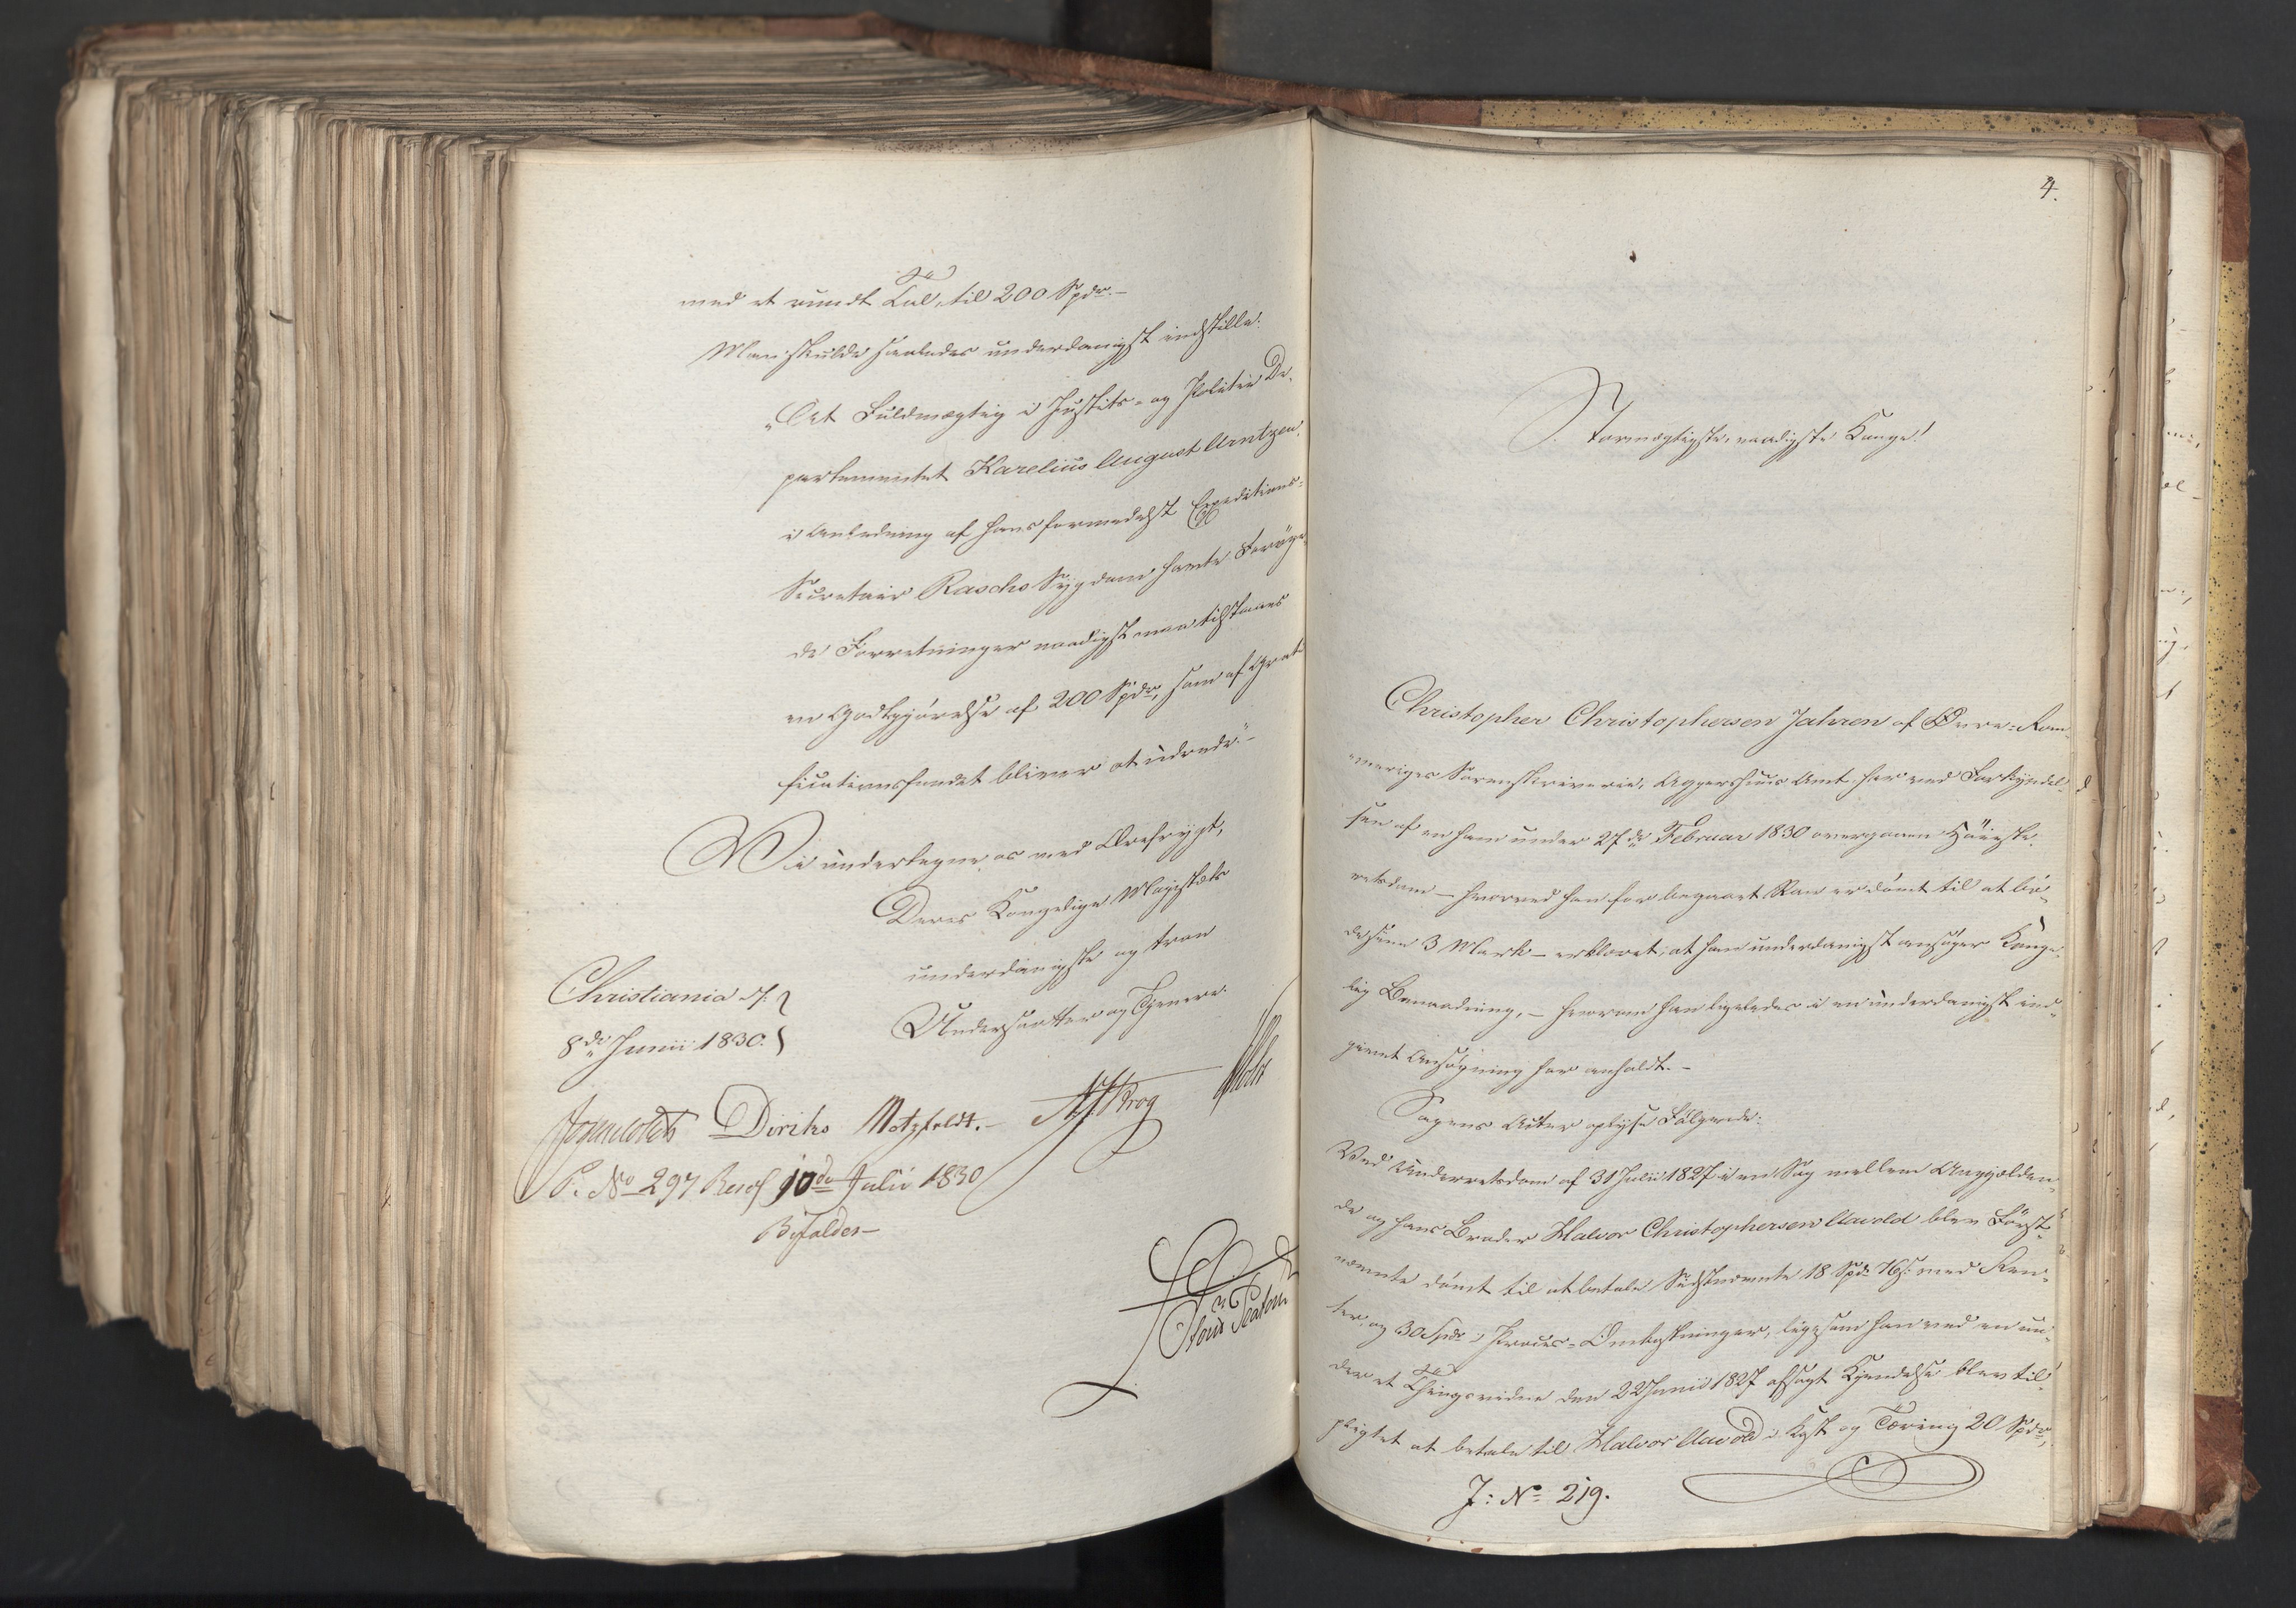 med et rundt Tal, til 200 Spdr.—
Man skulde saaledes underdanigst indstille:
„At Fuldmægtig i Justits- og Politie De-
partementet Karelius August Arntzen,
i Anledning af hans formedelst Expeditions-
Secretair Raschs Sygdom havte Forøge-
de Forretninger naadigst maa tilstaaes
en Godtgjørelse af 200 Spdr, som af Grati-
ficationsfondet bliver at udrede.“—
Vi undertegne os med Ærefrygt,
Deres Kongelige Majestæts
underdanigste og troe
Undersaatter og Tjenere.
Christiania d.
8de Junii 1830.
Diriks Motzfeldt.— Krog Holst
P. No 297 Resol 10de Julii 1830
Bifaldes—
4.
Stormægtigste, naadigste Konge!
Christopher Christophersen Jahren af Øvre-Rom-
meriges Sorenskriverie, Aggershuus Amt har ved Forkyndel-
sen af en ham under 27de Februar 1830 overgaaen Høieste-
retsdom — hvorved han for begaaet Ran er dømt til at bø-
de sine 3 Mark — erklæret, at han underdanigst ansøger Konge-
lig Benaadning, — hvorom han ligeledes i en underdanigst ind-
given Ansøgning har anholdt.—
Sagens Acter oplyse Følgende:
Ved Underretsdom af 31 Julii 1827 i en Sag mellem Angjælden-
de og hans Broder Halvor Christophersen Aavold blev Først-
nævnte dømt til at betale Sidstnævnte 18 Spd. 76 s. med Ren-
ter, og 30 Spdr i Proces-Omkostninger, ligesom han ved en un-
der et Thingsvidne den 22 Junii 1827 afsagt Kjendelse blev til-
pligtet at betale til Halvor Aavold i Kost og Tæring 20 Spdr,
J: No 219.